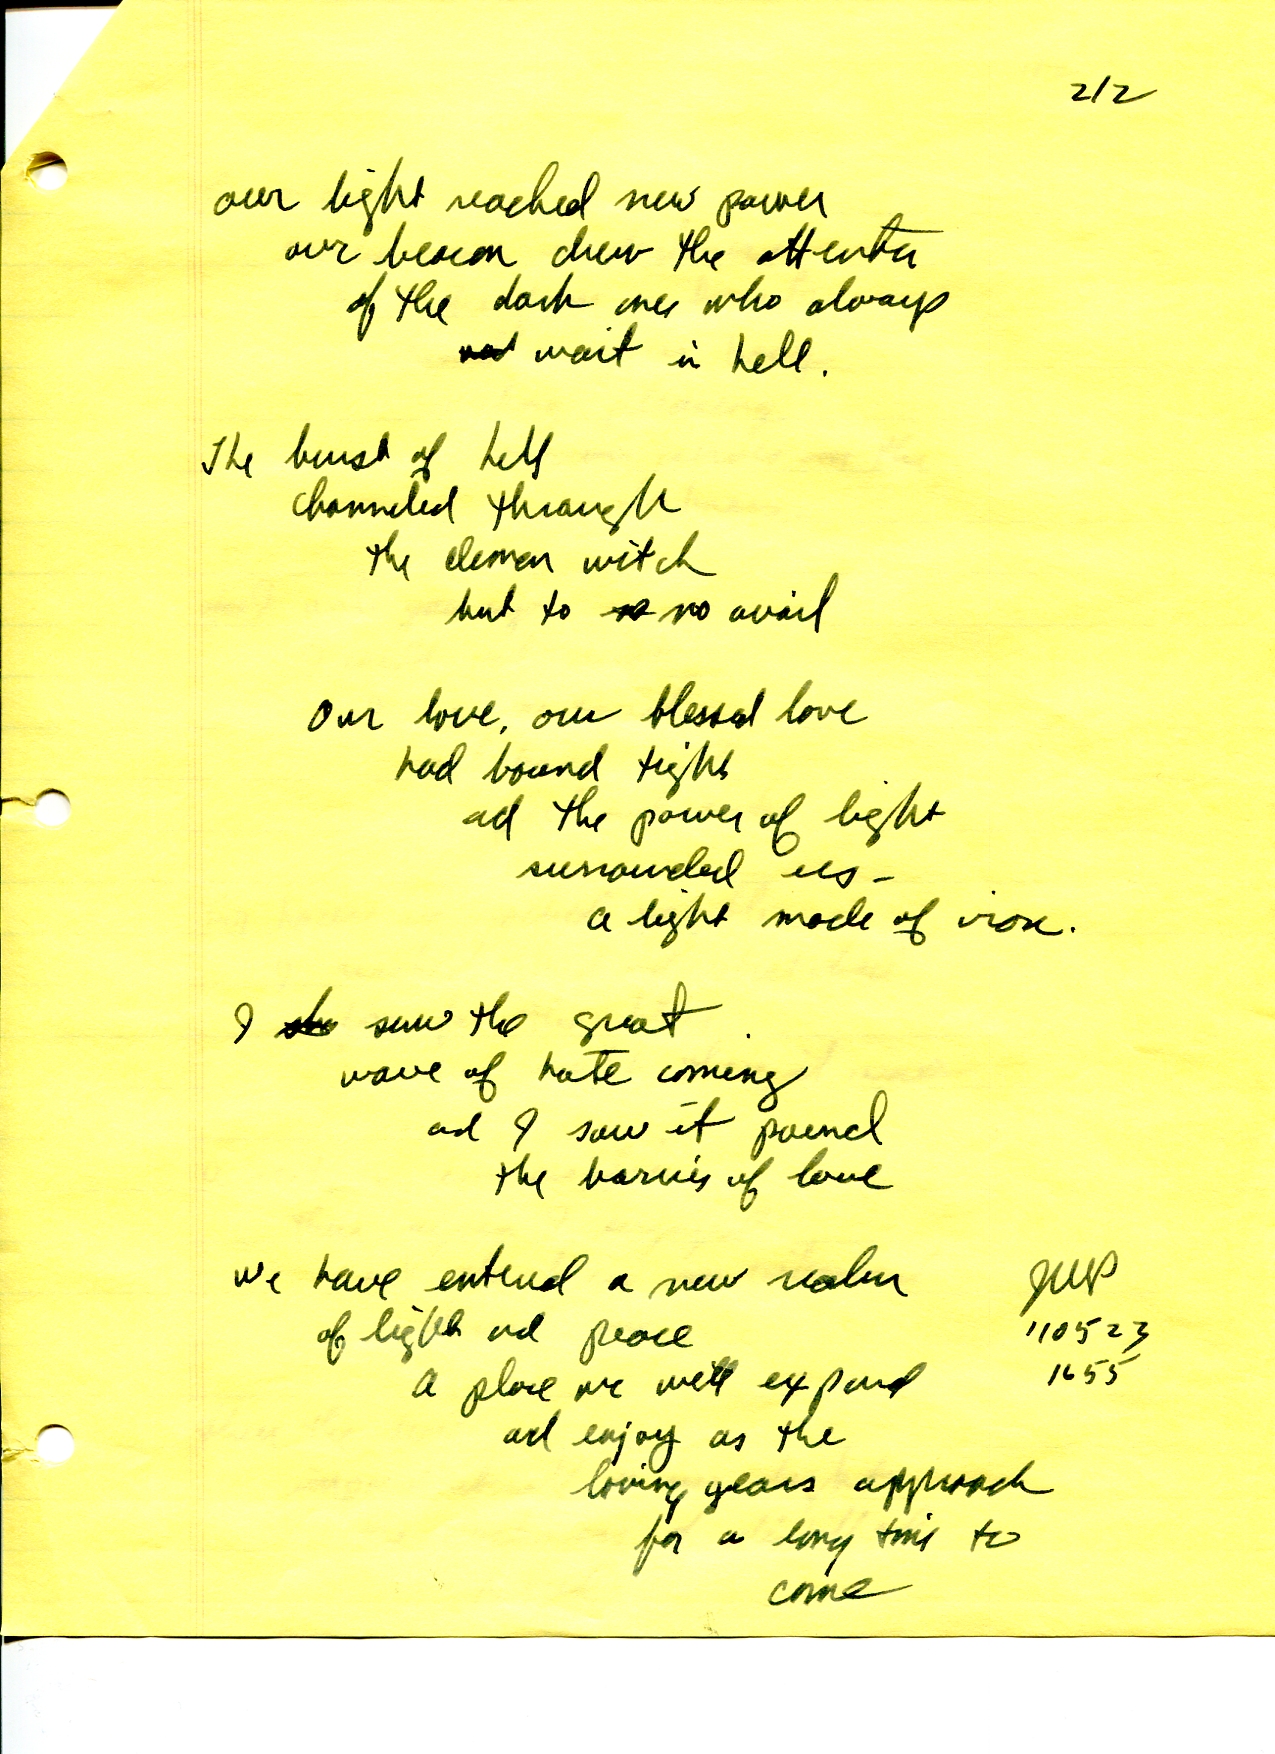 2/2
our light reached new power
our beacon drew the attention
of the dark ones who always
wait in hell.
The burst of hell
channeled through
the demon witch
but to no avail
Our love, our blessed love
had bound tight
and the power of light
surrounded us -
a light made of iron.
I saw the great
wave of hate coming
and I saw it pound
the barriers of love
We have entered a new realm
of light and peace
a place we will expand
and enjoy as the
loving years approach
for a long time to
come
110523
1655